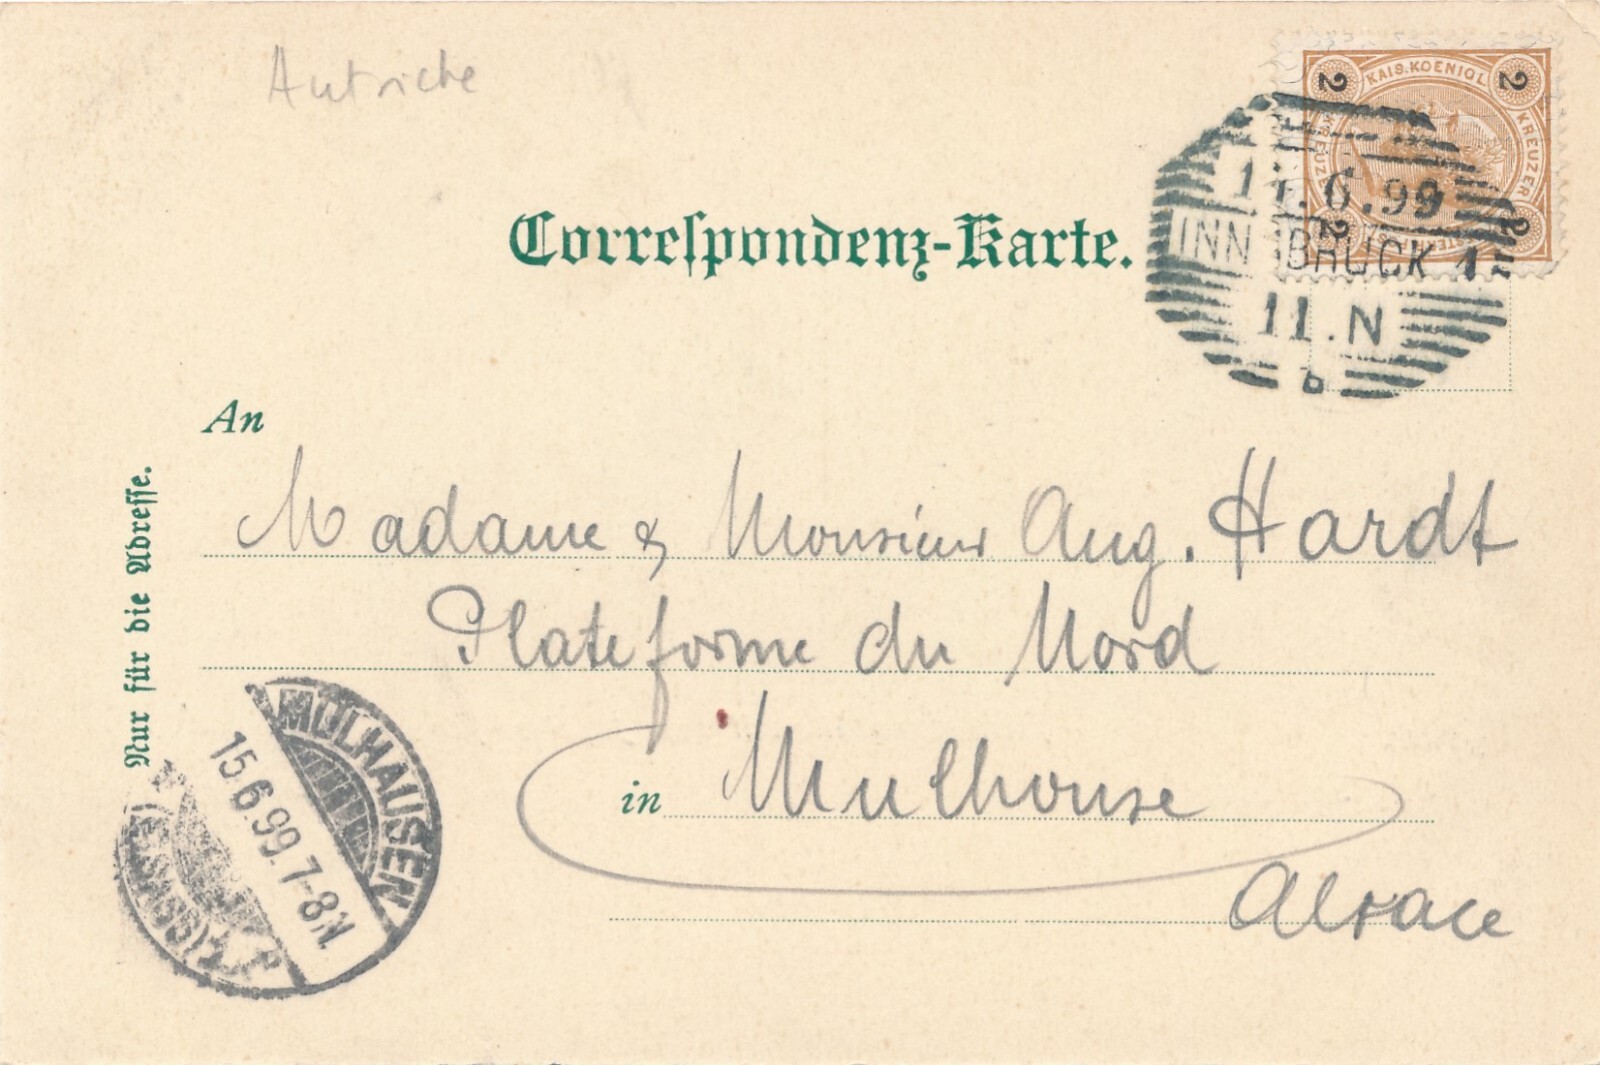 Autriche
2 KAIS. KOENIGL 2
KREUZER
KREUZER
2 2
6.99
INNSBRUCK 1
11.N
b
Correspondenz-Karte.
An
Madame & Monsieur Aug. Hardt
Plateforme du Nord
in Mulhouse
Alsace
Nur für die Adresse.
MÜLHAUSEN
15.6.99.7-8N.
(ELSASS)